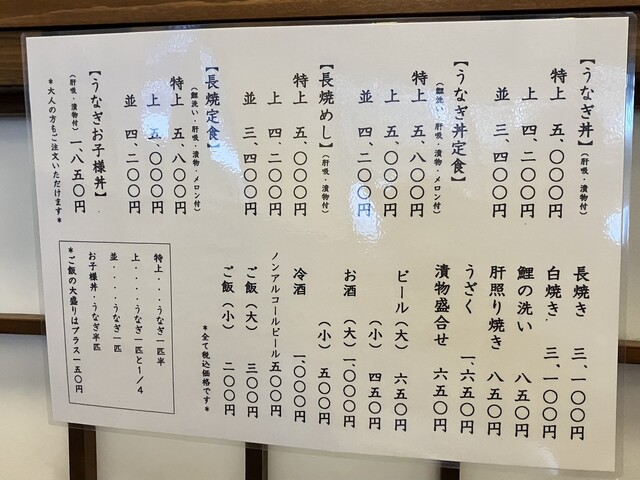 【うなぎ丼】(肝吸・漬物付)
特上 五、〇〇〇円
上 四、二〇〇円
並 三、四〇〇円
【うなぎ丼定食】
(鯉洗い・肝吸・漬物・メロン付)
特上 五、八〇〇円
上 五、〇〇〇円
並 四、二〇〇円
【長焼めし】(肝吸・漬物付)
特上 五、〇〇〇円
上 四、二〇〇円
並 三、四〇〇円
【長焼定食】
(鯉洗い・肝吸・漬物・メロン付)
特上 五、八〇〇円
上 五、〇〇〇円
並 四、二〇〇円
【うなぎお子様丼】
(肝吸・漬物付) 一、八五〇円
*大人の方もご注文いただけます*
長焼き 三、一〇〇円
白焼き 三、一〇〇円
鯉の洗い 八五〇円
肝照り焼き 八五〇円
うざく 一、六五〇円
漬物盛合せ 六五〇円
ビール(大) 六五〇円
(小) 四五〇円
お酒 (大) 一、〇〇〇円
(小) 五〇〇円
冷酒 一、〇〇〇円
ノンアルコールビール 五〇〇円
ご飯(大) 三〇〇円
ご飯(小) 二〇〇円
*全て税込価格です*
特上・・・うなぎ一匹半
上・・・・うなぎ一匹と1/4
並・・・・うなぎ一匹
お子様丼・うなぎ半匹
*ご飯の大盛りはプラス一五〇円